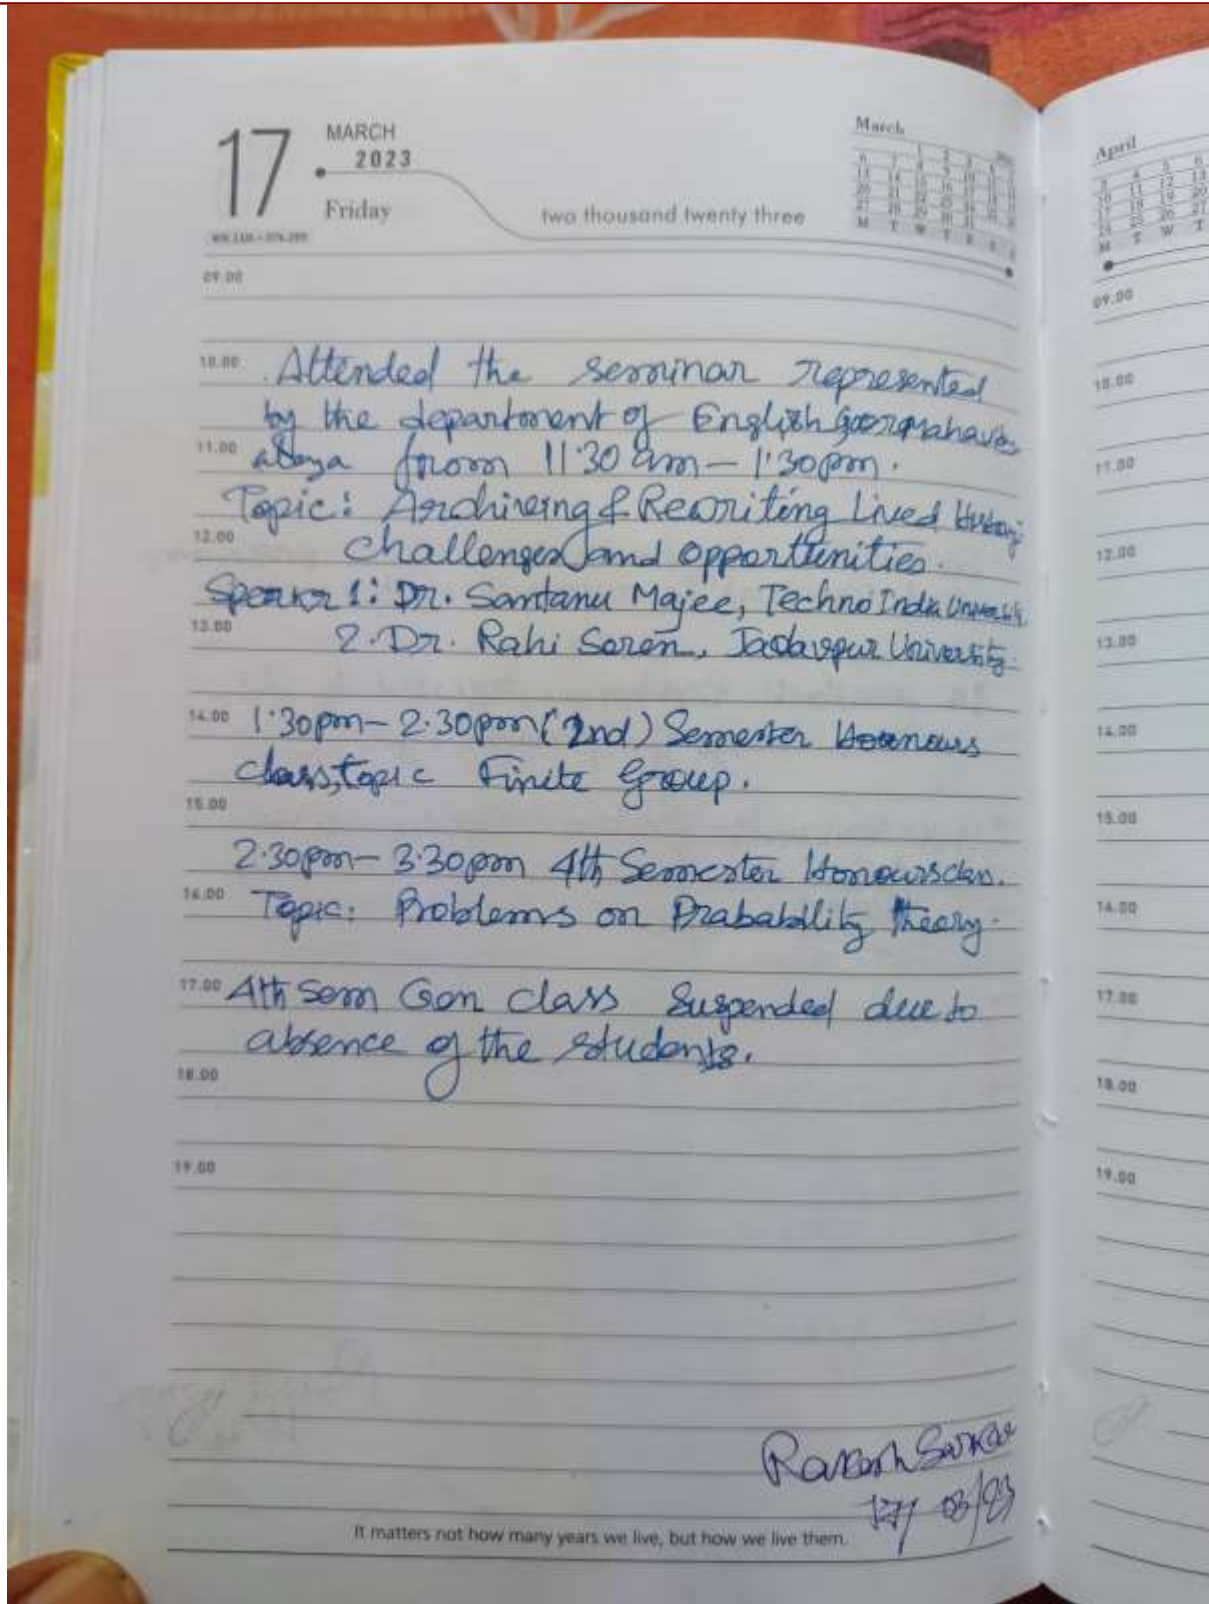 17
MARCH
2023
Friday
two thousand twenty three
March
April
09.00
10.00 Attended the seminar represented
by the department of English Gourmahavidy
11.00 alaya from 11:30 am – 1:30 pm.
Topic: Archiving & Rewriting Lived History:
12.00 challenges and opportunities.
Speaker 1: Dr. Santanu Majee, Techno India University
13.00 2. Dr. Rahi Soren, Jadavpur University.
14.00 1:30pm – 2.30pm (2nd) Semester Honours
class, topic Finite Group.
15.00
2.30pm – 3.30pm 4th Semester Honours class.
16.00 Topic: Problems on Prabability theory.
17.00 4th Sem Gen class Suspended due to
absence of the students.
18.00
19.00
Rakesh Sarkar
17/ 03/23
It matters not how many years we live, but how we live them.
09.00
10.00
11.00
12.00
13.00
14.00
15.00
16.00
17.00
18.00
19.00